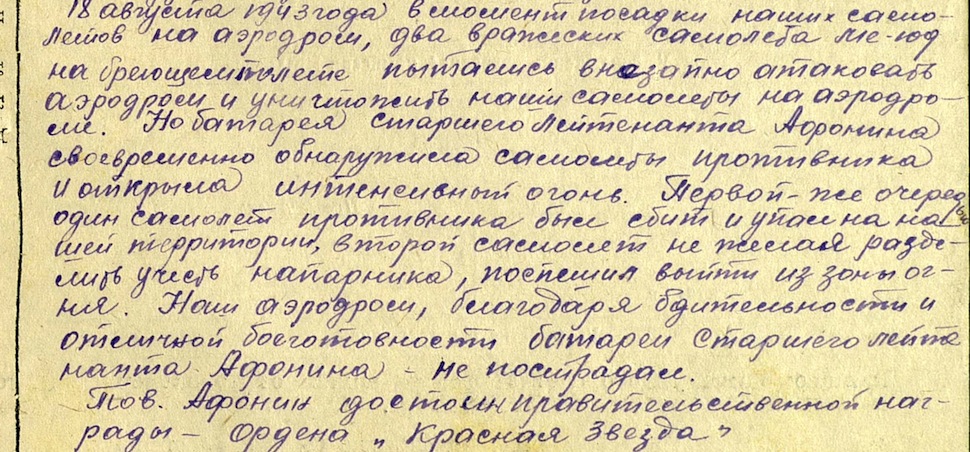 18 августа 1943 года в момент посадки наших само-
летов на аэродром, два вражеских самолета Ме-109
на бреющем полете пытались внезапно атаковать
аэродром и уничтожить наши самолеты на аэродро-
ме. Но батарея старшего лейтенанта Афонина
своевременно обнаружила самолеты противника
и открыла интенсивный огонь. Первой-же очередью
один самолет противника был сбит и упал на на-
шей территории, второй самолет не желая разде-
лить участь напарника, поспешил выйти из зоны ог-
ня. Наш аэродром, благодаря бдительности и
отличной боеготовности батареи старшего лейте
нанта Афонина - не пострадал.
Тов. Афонин достоин правительственной наг-
рады - Ордена „Красная Звезда"